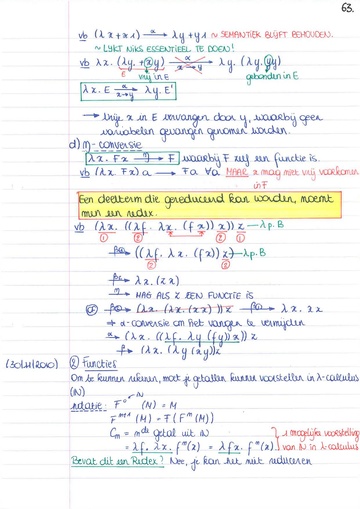 63.
vb (λx+x1) —α→ λy+y1 ~ SEMANTIEK BLIJFT BEHOUDEN.
~ LIJKT NIKS ESSENTIEEL TE DOEN!
vb λx. (λy. +xy) α x→y λy. (λy. yy)
E vrij in E gebonden in E
λx. E —α x→y→ λy. E'
→ Vrije x in E vervangen door y, waarbij geen
variabelen gevangen genomen worden.
d) η-conversie
λx. Fx —η→ F waarbij F zelf een functie is.
vb (λx Fx) a → Fa ∀a MAAR x mag niet vrij voorkomen
in F
Een deelterm die gereduceerd kan worden, noemt
men een redex.
vb (λx. ((λf. λx. (fx)) x)) z → λp. B
① ② ② ①
β① ((λf. λx. (fx)) z) → λp. B
② ②
β② λx. (zx)
η → MAG ALS z EEN FUNCTIE IS
→ α-conversie om het vangen te vermijden
α (λx. ((λf. λy (fy)) x)) z
β (λx. (λy (xy)) z
② Functies
Om te kunnen rekenen, moet je getallen kunnen voorstellen in λ-calculus
(ℕ)
notatie: F⁰ (M) = M
Fᵐ⁺¹ (M) = F(Fᵐ(M))
Cₘ = mᵈᵉ getal uit ℕ 1 mogelijke voorstelling
= λf. λx. fᵐ(x) = λfx. fᵐ(x) van ℕ in λ-calculus
Bevat dit een Redex? Nee, je kan het niet reduceren